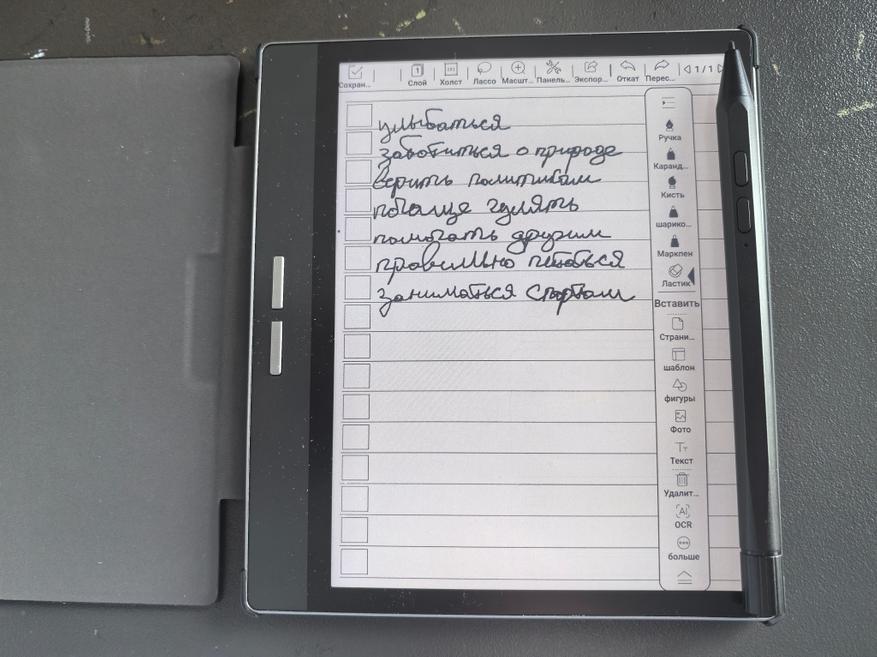 Сохран...
1
Слой
Холст
Лассо
Масшт...
Панель...
Экспор...
Откат
Перес...
1/1
улыбаться
заботиться о природе
верить политикам
почаще гулять
помогать другим
правильно питаться
заниматься спортом
Ручка
Каранд...
Кисть
шарико...
Маркпен
Ластик
Вставить
Страни...
шаблон
фигуры
Фото
Tт
Текст
Удалит...
AI
OCR
больше